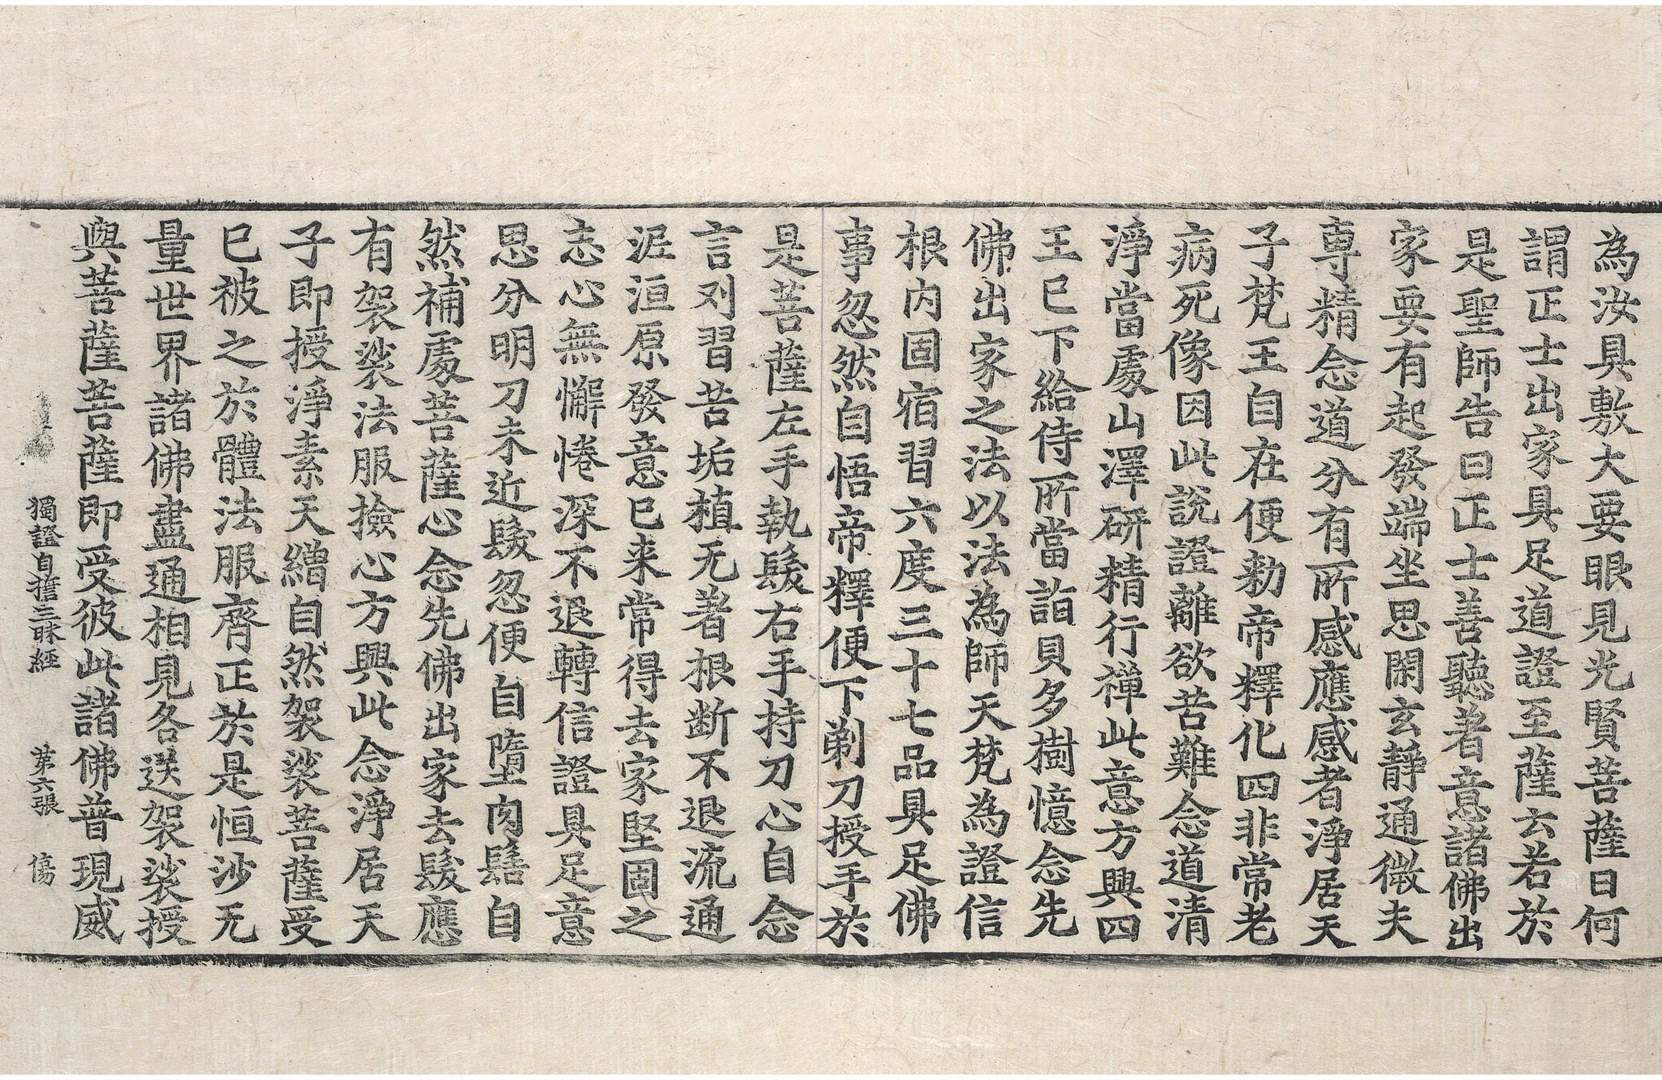 為汝具敷大要眼見光賢菩薩曰何
謂正士出家具足道證至薩云若於
是聖師告曰正士善聽著意諸佛出
家要有起發端坐思閑玄靜通微夫
専精念道分有所感應感者淨居天
子梵王自在便勑帝釋化四非常老
病死像因此說證離欲苦難念道清
淨當處山澤研精行禪此意方興四
王已下給侍所當詣貝多樹憶念先
佛出家之法以法為師天梵為證信
根內固宿習六度三十七品具足佛
事忽然自悟帝釋便下剃刀授手於
是菩薩左手執髮右手持刀心自念
言刈習苦垢植无著根断不退流通
泥洹原發意已来常得去家堅固之
志心無懈惓深不退轉信證具足意
思分明刀未近髮忽便自墮肉髻自
然補處菩薩心念先佛出家去髮應
有袈裟法服撿心方興此念淨居天
子即授淨素天繒自然袈裟菩薩受
已被之於體法服齊正於是恒沙无
量世界諸佛盡通相見各送袈裟授
與菩薩菩薩即受彼此諸佛普現威
獨證自誓三昧經 第六張 傷